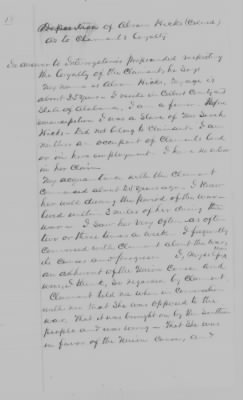 Deposition of Abram Hicks (Colored)
As to Claimant's Loyalty
In answer to Interrogatories Propounded respecting
the Loyalty of the Claimant, he says
My name is Abram Hicks, My age is
about 35 years. I reside in Colbert County and
State of Alabama, I am a farmer. Before
emancipation I was a Slave of
Hicks - Did not belong to Claimant. I am
neither an occupant of Claimant's land
or in her employment. I have no interest
in her Claim.
My acquaintance with the Claimant
Commenced about 25 years ago. I knew
her well during the period of the war.
lived within 3 miles of her during the
war. I saw her very often as often
two or three times a week. I frequently
Conversed with Claimant about the war,
its causes and progress. I, Myself was
an adherent of the Union Cause and
was, I think, so regarded by Claimant.
Claimant told me when in Conversation
with me that She was opposed to the
war. That it was brought on by the Southern
people and was wrong - That She was
in favor of the Union Cause, and